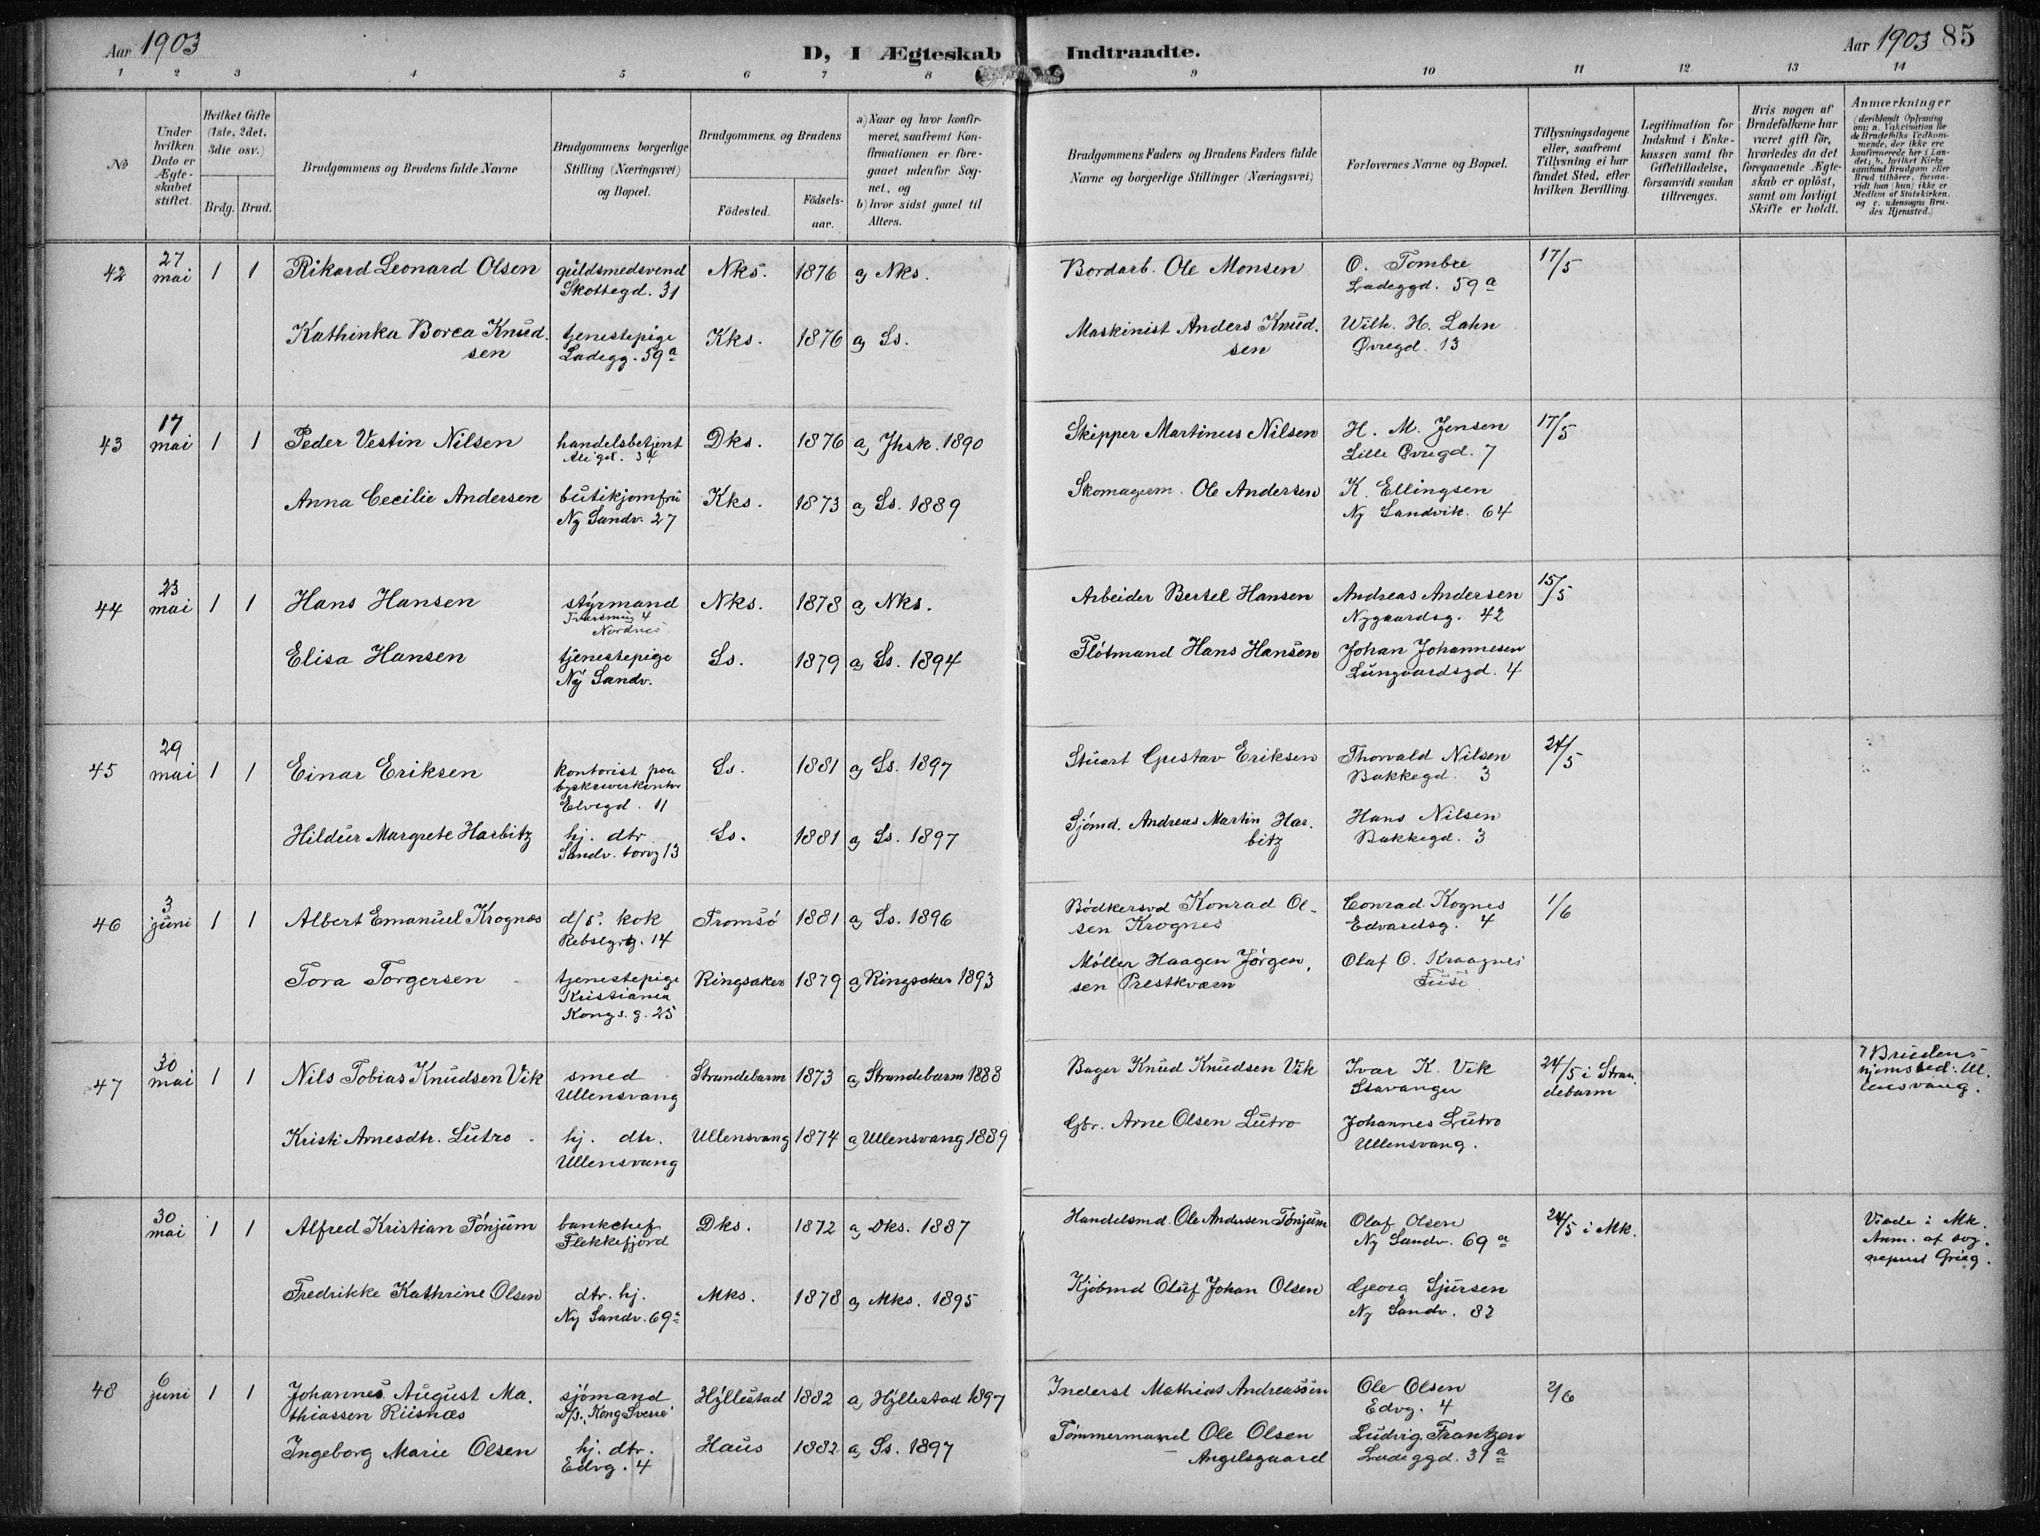 Aar 1903
D, I Ægteskab Indtraadte.
Aar 1903 85
1 2 3 4 5 6 7 8 9 10 11 12 13 14
No
Under hvilken Dato er Ægteskabet stiftet.
Hvilket Gifte (1ste, 2det, 3die osv.)
Brdg. Brud.
Brudgommens og Brudens fulde Navne
Brudgommens borgerlige Stilling (Næringsvei) og Bopæl.
Brudgommens, og Brudens
Födested.
Födselsaar.
a) Naar og hvor konfirmeret, saafremt Konfirmationen er foregaaet udenfor Sognet, og
b) hvor sidst gaaet til Alters.
Brudgommens Faders og Brudens Faders fulde Navne og borgerlige Stillinger (Næringsvei)
Forlovernes Navne og Bopæl.
Tillysningsdagene eller, saafremt Tillysning ei har fundet Sted, efter hvilken Bevilling.
Legitimation for Indskud i Enkekassen samt for Giftetilladelse, forsaavidt saadan tiltrænges.
Hvis nogen af Brudefolkene har været gift för, hvorledes da det foregaaende Ægteskab er oplöst, samt om lovligt Skifte er holdt.
Anmærkninger
42 27 mai 1 1 Rikard Leonard Olsen guldsmedsvend Nks. 1876 a) Nks. Bordarb. Ole Monsen O. Tombre 17/5
Skottegd. 31 Ladeggd. 59a
Kathinka Borea Knud- tjenestepige Kks. 1876 a) Ss. Maskinist Anders Knud- Wilh. H. Lahn
sen Ladegg. 59a sen Øvregd. 13
43 17 mai 1 1 Peder Vestin Nilsen handelsbetjent Dks. 1876 a) Jhsk. 1890 Skipper Martinus Nilsen H. M. Jensen 17/5
Lille Øvregd. 7
Anna Cecilie Andersen butikjomfru Kks. 1873 a) Ss. 1889 Skomagerm. Ole Andersen K. Ellingsen
Ny Sandv. 27 Ny Sandvik. 64
44 23 mai 1 1 Hans Hansen styrmand Nks. 1878 a) Nks. Arbeider Bertel Hansen Andreas Andersen 15/5
Nordnes Nygaardsg. 42
Elisa Hansen tjenestepige Ss. 1879 a) Ss. 1894 Flötmand Hans Hansen Johan Johannesen
Ny Sandv. Lungaardsgd. 4
45 29 mai 1 1 Einar Eriksen kontorist paa Ss. 1881 a) Ss. 1897 Stuart Gustav Eriksen Thorvald Nilsen 24/5
byskriverkontor Bakkegd. 3
Elvegd. 11
Hildur Margrete Harbitz hj. dtr. Ss. 1881 a) Ss. 1897 Sjömd. Andreas Martin Har- Hans Nilsen
Sandv. torvg 13 bitz Bakkegd. 3
46 3 juni 1 1 Albert Emanuel Krognæs d/s. kok Tromsö 1881 a) Ss. 1896 Bödkersvd Konrad Ol- Conrad Kognes 1/6
14 sen Krognes Edvardsg. 4
Tora Torgersen tjenestepige Ringsaker 1879 a) Ringsaker 1893 Møller Haagen Jørgen- Olaf O. Kraagnes
Kristiania sen Prestkværn
Kongs. g. 25
47 30 mai 1 1 Nils Tobias Knudsen Vik smed Strandebarm 1873 a) Strandebarm 1888 Bager Knud Knudsen Vik Ivar K. Vik 24/5 i Stran- Brudens
Ullensvang Stavanger debarm hjemsted: Ul-
lensvang.
Kristi Arnesdtr. Lutro hj. dtr. Ullensvang 1874 a) Ullensvang 1889 Gbr. Arne Olsen Lutro Johannes Lutro
Ullensvang Ullensvang.
30 mai 1 1 Alfred Kristian Tönjum bankchef Dks. 1872 a) Dks. 1887 Handelsmd. Ole Andersen Tönjum Olaf Olsen 24/5 i Mk. Viede i Mk.
Flekkefjord Ny Sandv. 69a Anm. af sog-
nepræst Grieg.
Fredrikke Kathrine Olsen dtr. hj. Mks. 1878 a) Mks. 1895 Kjöbmd Oluf Johan Olsen Georg Sjursen
Ny Sandv. 69a Ny Sandv. 82
48 6 juni 1 1 Johannes August Ma- sjömand Hyllestad 1882 a) Hyllestad 1897 Inderst Mathias Andreassen Ole Olsen 2/6
thiassen Riisnæs D/S. "Kong Sverre" Edvg. 4
Ingeborg Marie Olsen hj. dtr. Haus 1882 a) Ss. 1897 Tömmermand Ole Olsen Ludvig Frantzen
Edvg. 4 Angelsgaard Ladeggd. 31a